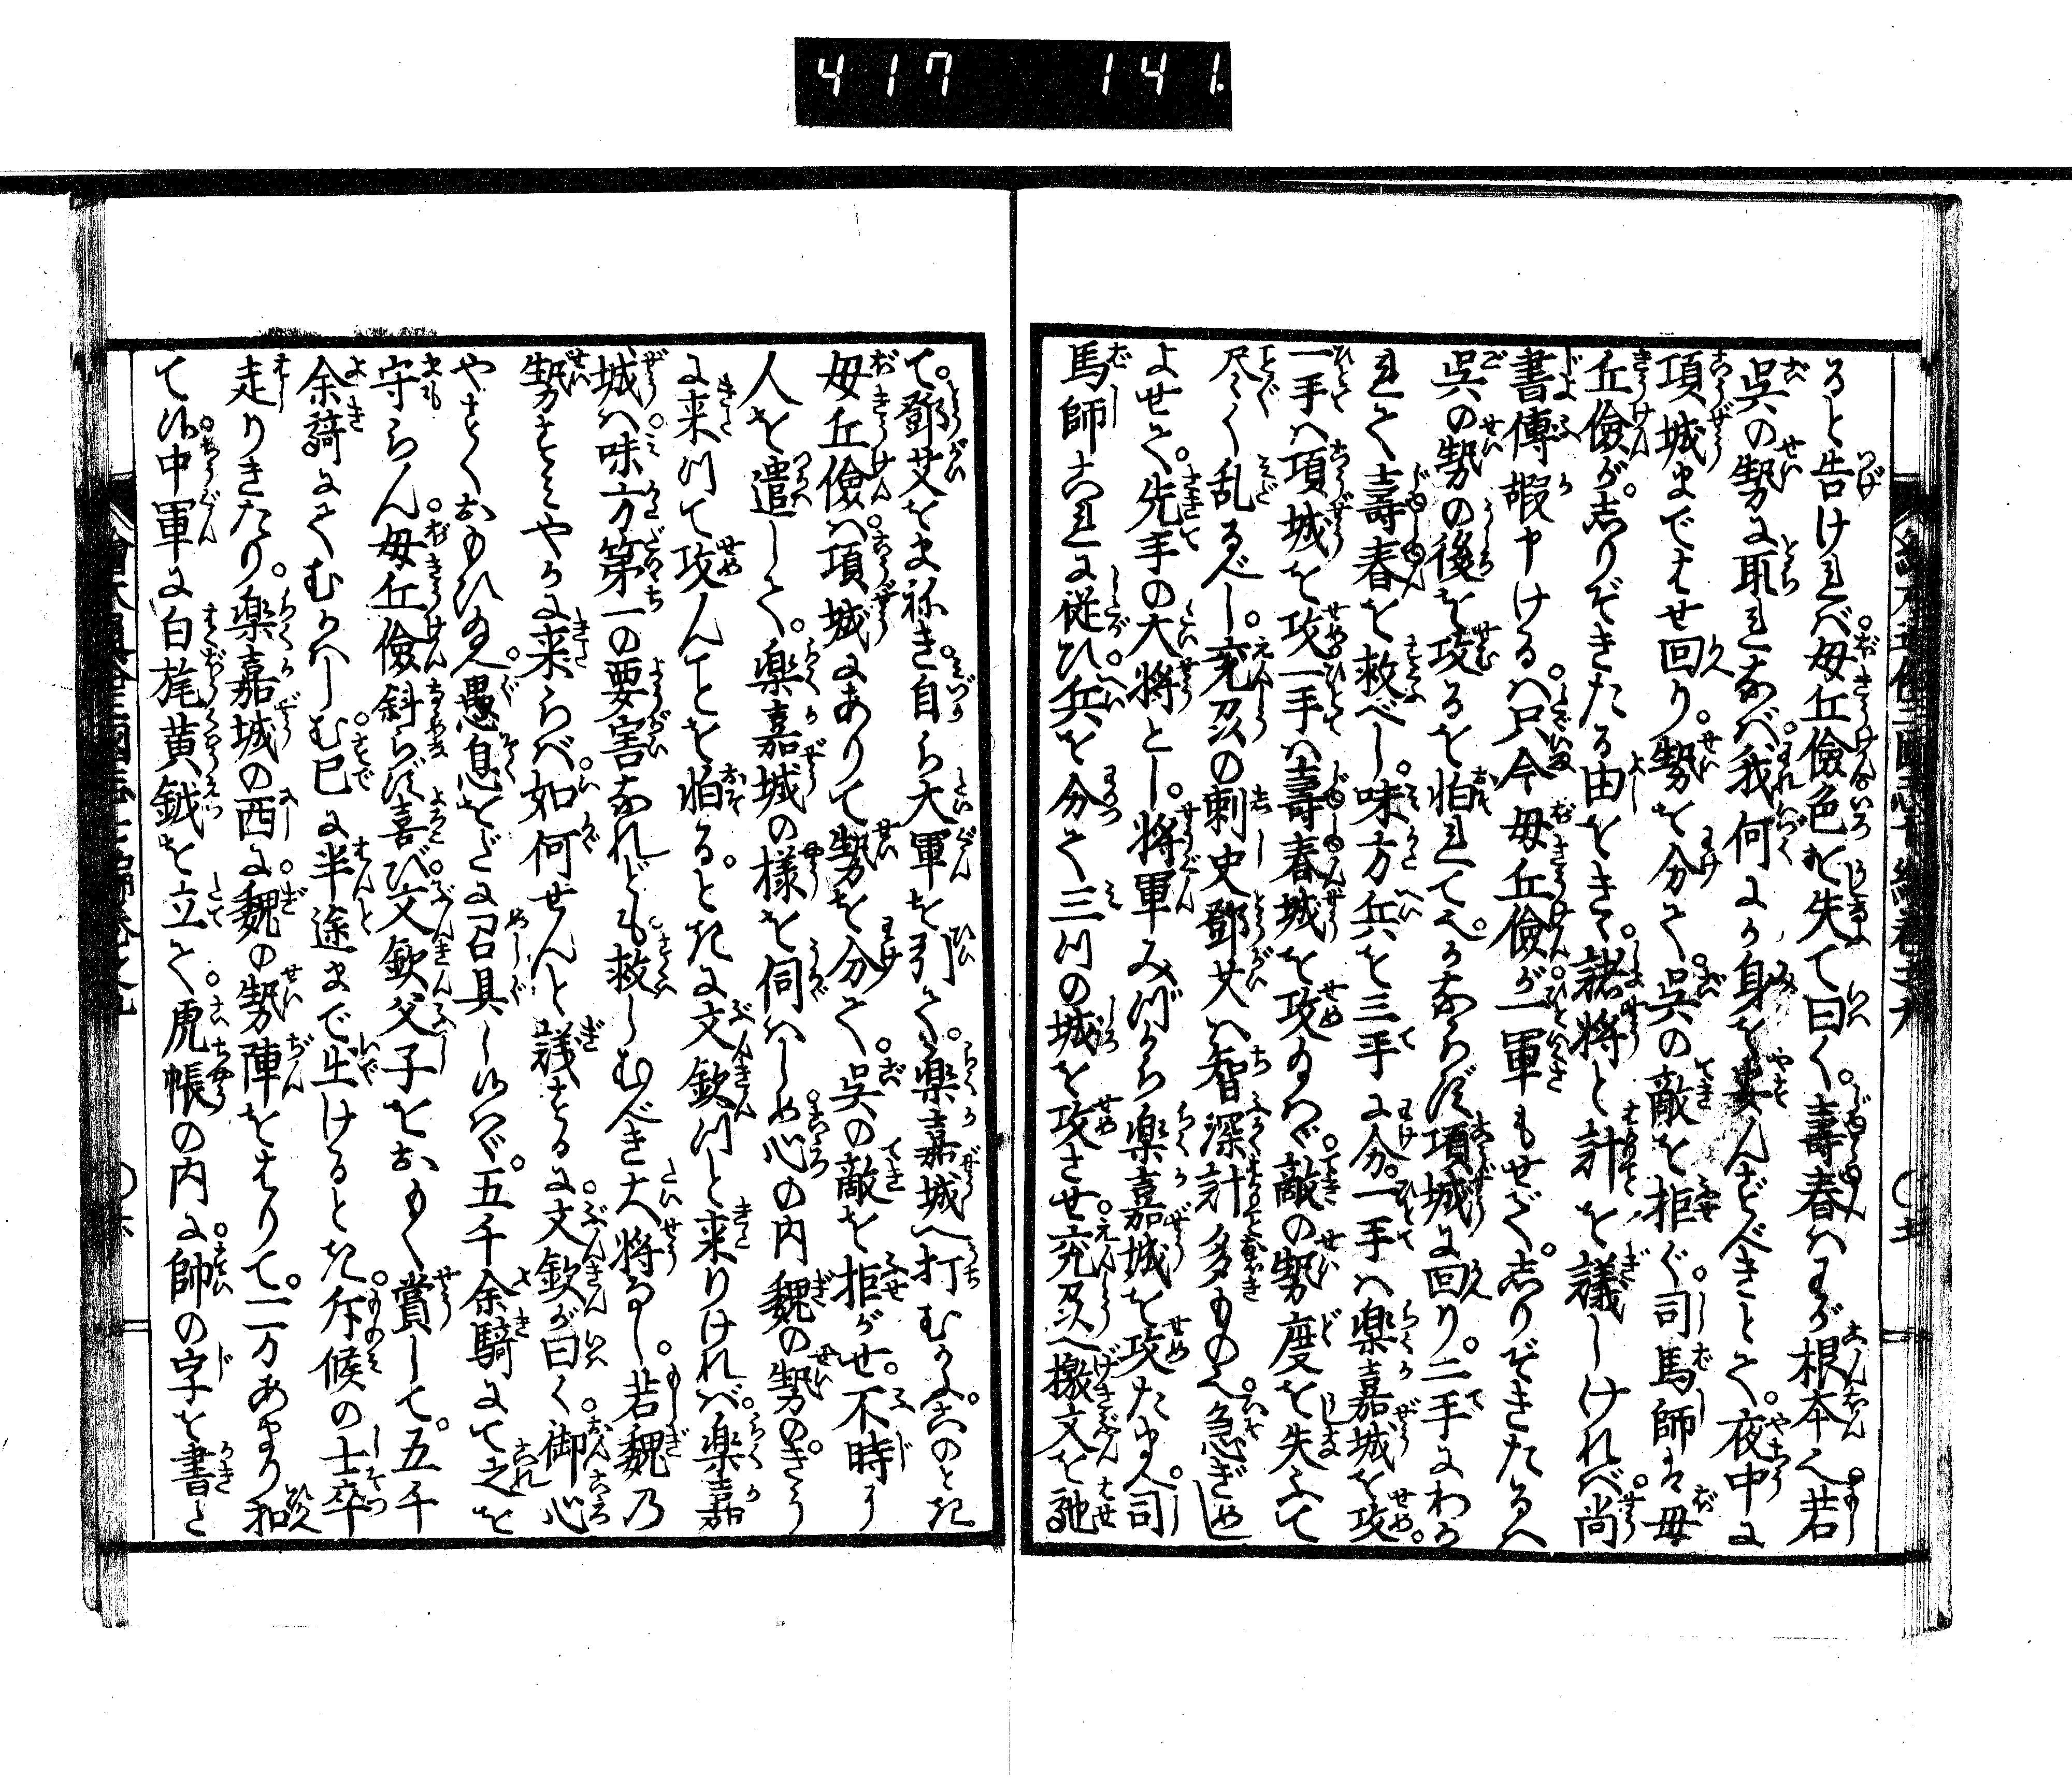 417 141.
ると告けれバ毋丘儉色を失て曰く壽春ハわが根本也若
呉の勢に取れなバ我何にか身を安んずべきとて夜中に
項城まではせ回り勢を分て呉の敵を拒ぐ司馬師は毋
丘儉がしりぞきたる由をきゝ諸将と計を議しけれバ尚
書傅嘏申けるハ只今毋丘儉が一軍もせで志りぞきたるハ
呉の勢の後を攻るを怕れて也かならず項城に回り二手にわか
れて壽春を救べし味方兵を三手に分一手ハ楽嘉城を攻
一手ハ項城を攻一手ハ壽春城を攻めるハゞ敵の勢度を失ふて
尽く乱るべし兗州の刺史鄧艾ハ智深計多ものなり急ぎめし
よせて先手の大将とし将軍みづから楽嘉城を攻たまへ司
馬師これに従ひ兵を分て三つの城を攻させ兗州へ檄文を馳
て鄧艾をまねき自ら大軍を引て楽嘉城へ打むかふこのとき
毋丘儉ハ項城にありて勢を分て呉の敵を拒がせ不時に
人を遣して楽嘉城の様を伺ハしめ心の内魏の勢のきう
に来つて攻んことを怕るときに文欽つと来りければ楽嘉
城ハ味方第一の要害なれども救しむべき大将なし若魏乃
勢すミやかに来らバ如何せんと議するに文欽が曰く御心
やすくおもひ給へ愚息をだに召具し候ハゞ五千余騎にて之を
守らん毋丘儉斜らず喜び文欽父子をおもく賞して五千
余騎にてむかハしむ已に半途まで出けるとき斥候の士卒
走りきたり楽嘉城の西に魏の勢陣をはりて一万あまり和
て候中軍に白旄黄鉞を立て虎帳の内に帥の字を書と